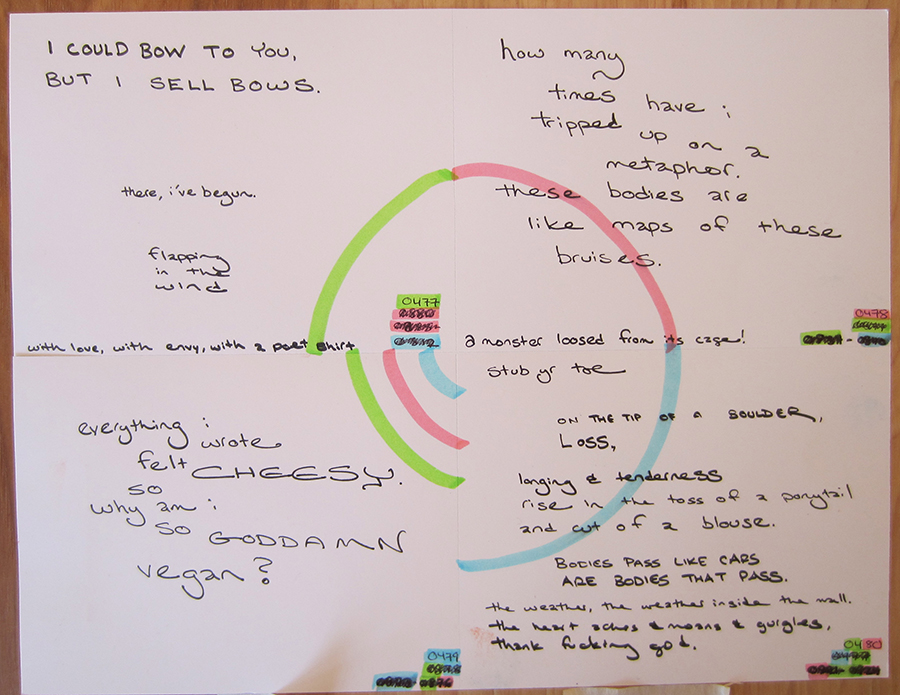 I COULD BOW TO YOU,
BUT I SELL BOWS.
there, i've begun.
flapping
in the
wind
0477
with love, with envy, with a poet shirt
how many
times have i
tripped up on a
metaphor.
these bodies are
like maps of these
bruises.
0478
a monster loosed from its cage!
everything i wrote
felt CHEESY.
so
why am i
so GODDAMN
vegan?
0479
stub yr toe
ON THE TIP OF A BOULDER,
LOSS,
longing & tenderness
rise in the toss of a ponytail
and cut of a blouse.
BODIES PASS LIKE CARS
ARE BODIES THAT PASS.
the weather, the weather inside the mall.
the heart aches & moans & gurgles,
thank fucking god.
0480